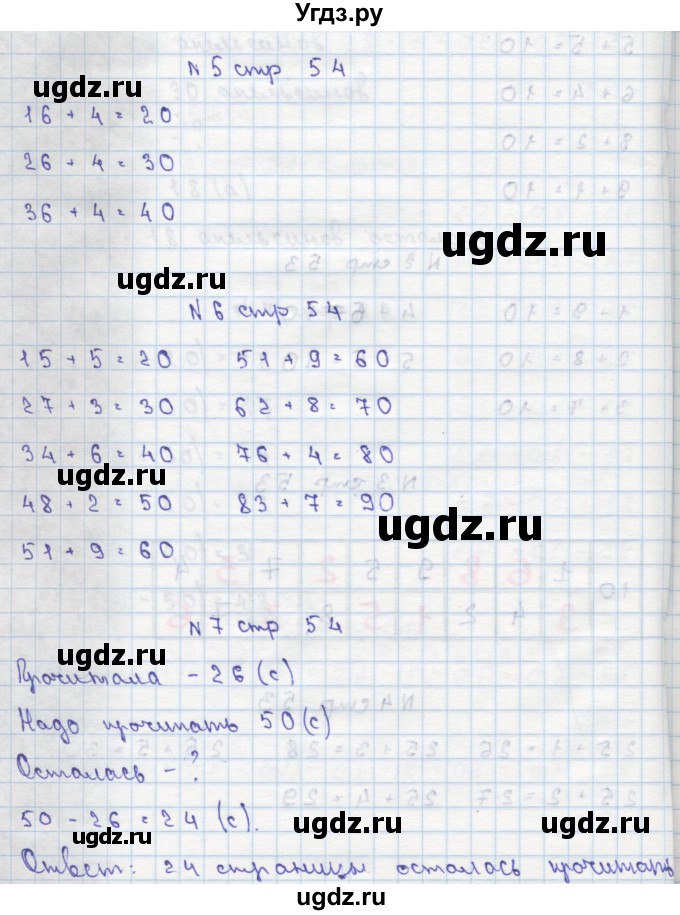 Угдз.ру
N 5 стр 54
ugdz.ru
16 + 4 = 20
26 + 4 = 30
36 + 4 = 40
ugdz.ru
ugdz.ru
N 6 стр 54
15 + 5 = 20 51 + 9 = 60
27 + 3 = 30 62 + 8 = 70
34 + 6 = 40 76 + 4 = 80
ugdz.ru
48 + 2 = 50 83 + 7 = 90
ugdz.ru
51 + 9 = 60
N 7 стр 54
ugdz.ru
Прочитала - 26 (с)
Надо прочитать 50 (с)
Осталась - ?
50 - 26 = 24 (с).
ugdz.ru
ugdz.ru
Ответ: 24 страницы осталась прочитать
ugdz.ru